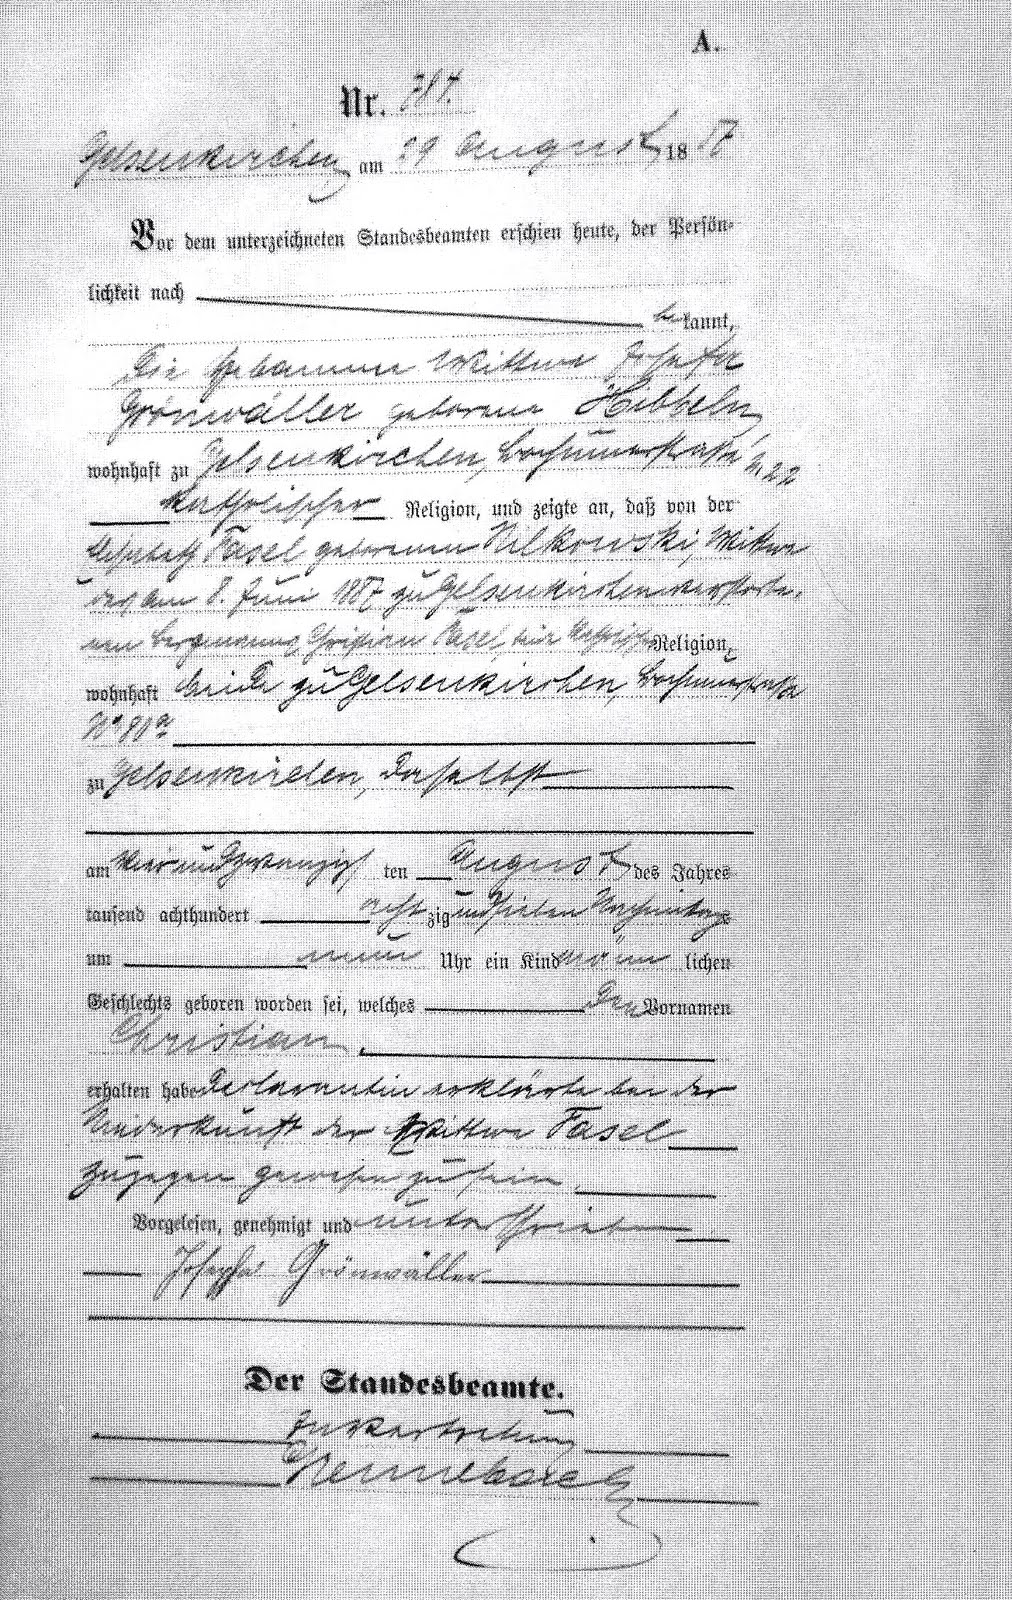 A.
Nr. 784.
Gelsenkirchen, am 29 August 1887
Vor dem unterzeichneten Standesbeamten erschien heute, der Persön-
lichkeit nach
bekannt,
Die Hebamme Wittwe Josefa
Grönwäller geborene Hibbeln,
wohnhaft zu Gelsenkirchen, Bochumerstraße N. 22
katholischer Religion, und zeigte an, daß von der
Fasel geborenen Nilkowski, Wittwe
des am 8. Juni 1887 zu Gelsenkirchen verstorbe-
nen Bergmanns Christian Fasel, Religion,
wohnhaft beide zu Gelsenkirchen, Bochumerstraße
No 80a
zu Gelsenkirchen, daselbst
am vier und zwanzig ten August des Jahres
tausend achthundert acht zig und sieben Nachmittags
um neun Uhr ein Kind männ lichen
Geschlechts geboren worden sei, welches den Vornamen
Christian
erhalten habe Declarantin erklärte bei der
Niederkunft der Wittwe Fasel
zugegen gewesen zu sein.
Vorgelesen, genehmigt und unterschrieben
Josepha Grönwäller
Der Standesbeamte.
In Vertretung